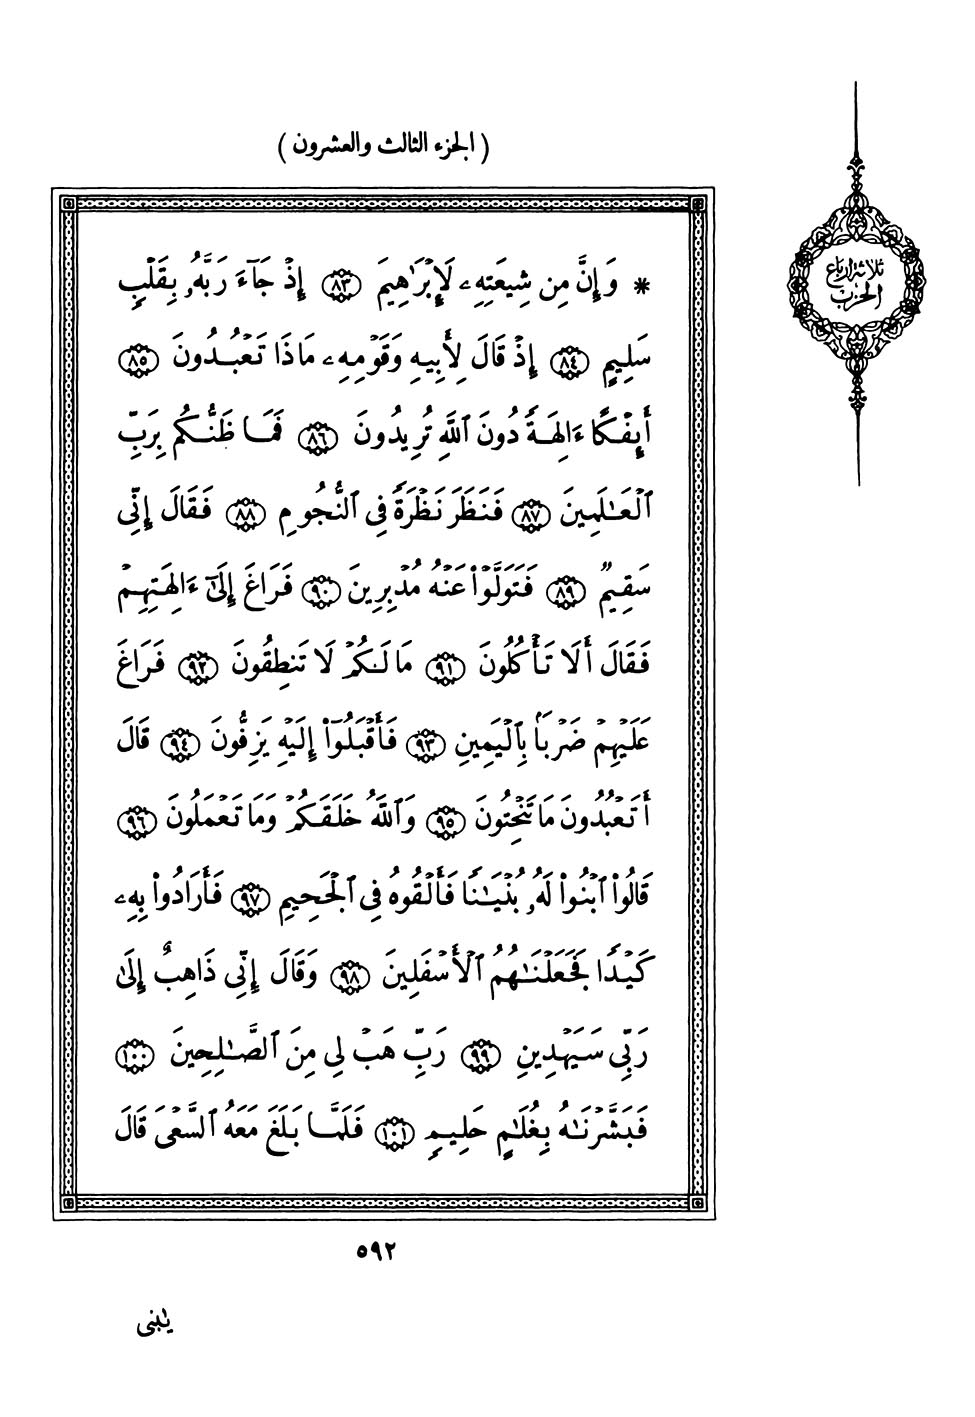 ( الجزء الثالث والعشرون )
ثلاثة أرباع
الحزب
* وَإِنَّ مِن شِيعَتِهِۦ لَإِبْرَٰهِيمَ ٨٣ إِذْ جَآءَ رَبَّهُۥ بِقَلْبٍ
سَلِيمٍ ٨٤ إِذْ قَالَ لِأَبِيهِ وَقَوْمِهِۦ مَاذَا تَعْبُدُونَ ٨٥
أَئِفْكًا ءَالِهَةً دُونَ ٱللَّهِ تُرِيدُونَ ٨٦ فَمَا ظَنُّكُم بِرَبِّ
ٱلْعَٰلَمِينَ ٨٧ فَنَظَرَ نَظْرَةً فِى ٱلنُّجُومِ ٨٨ فَقَالَ إِنِّى
سَقِيمٌ ٨٩ فَتَوَلَّوْا۟ عَنْهُ مُدْبِرِينَ ٩٠ فَرَاغَ إِلَىٰٓ ءَالِهَتِهِمْ
فَقَالَ أَلَا تَأْكُلُونَ ٩١ مَا لَكُمْ لَا تَنطِقُونَ ٩٢ فَرَاغَ
عَلَيْهِمْ ضَرْبًۢا بِٱلْيَمِينِ ٩٣ فَأَقْبَلُوٓا۟ إِلَيْهِ يَزِفُّونَ ٩٤ قَالَ
أَتَعْبُدُونَ مَا تَنْحِتُونَ ٩٥ وَٱللَّهُ خَلَقَكُمْ وَمَا تَعْمَلُونَ ٩٦
قَالُوا۟ ٱبْنُوا۟ لَهُۥ بُنْيَٰنًا فَأَلْقُوهُ فِى ٱلْجَحِيمِ ٩٧ فَأَرَادُوا۟ بِهِۦ
كَيْدًا فَجَعَلْنَٰهُمُ ٱلْأَسْفَلِينَ ٩٨ وَقَالَ إِنِّى ذَاهِبٌ إِلَىٰ
رَبِّى سَيَهْدِينِ ٩٩ رَبِّ هَبْ لِى مِنَ ٱلصَّٰلِحِينَ ١٠٠
فَبَشَّرْنَٰهُ بِغُلَٰمٍ حَلِيمٍ ١٠١ فَلَمَّا بَلَغَ مَعَهُ ٱلسَّعْىَ قَالَ
٥٩٢
يَٰبُنَى